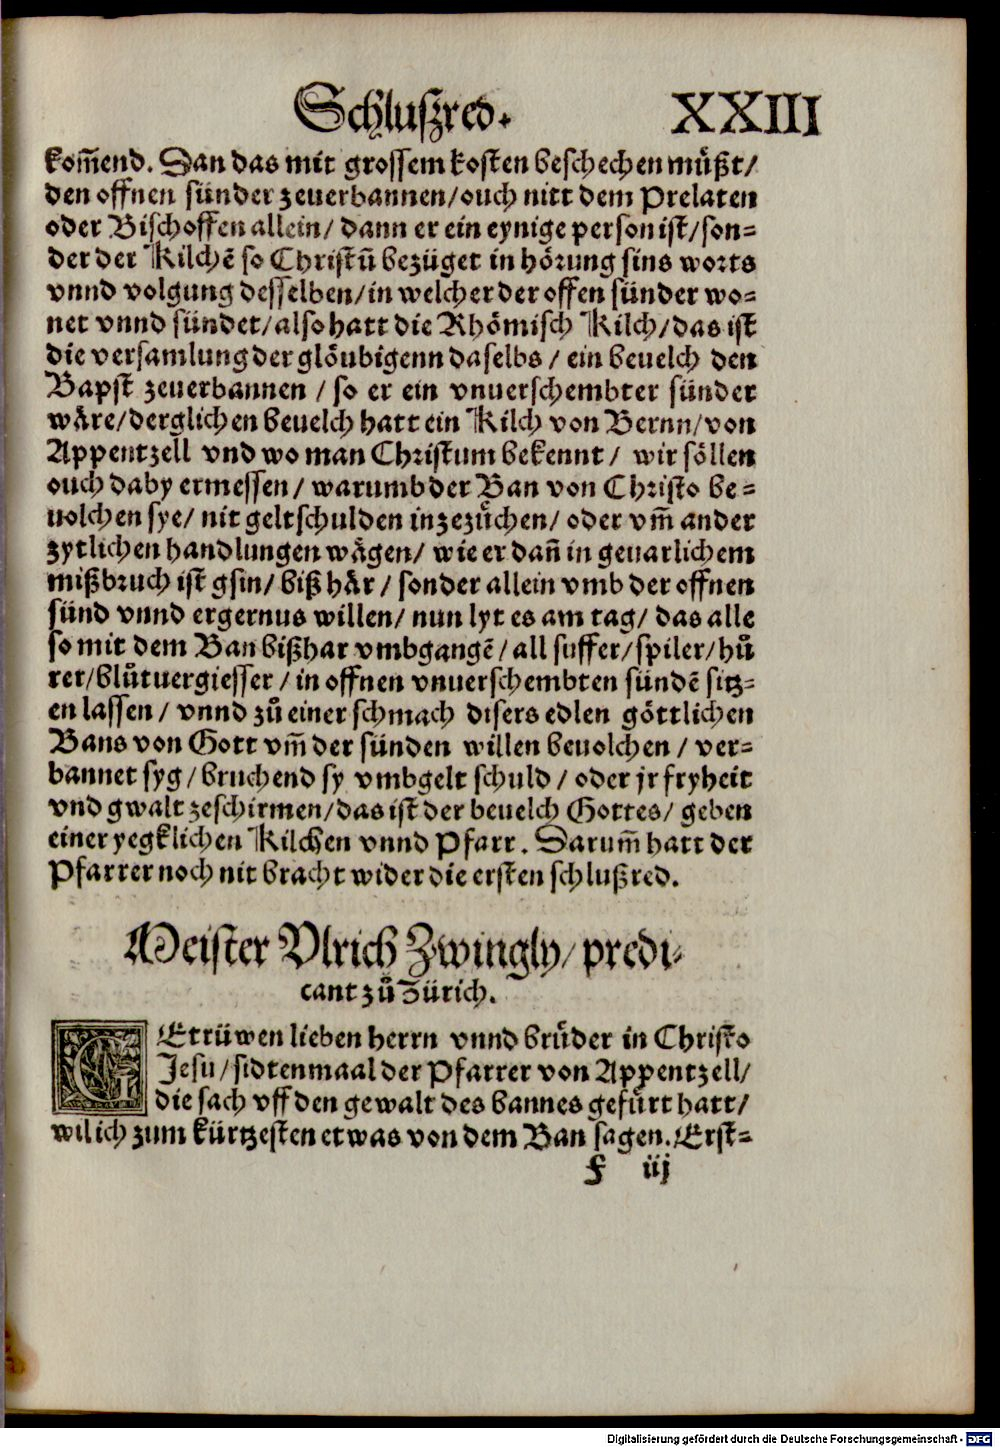 Schluſzred. XXIII
kom̃end. Dan das mit groſſem koſten beſchechen müßt/
den offnen ſünder zeuerbannen/ouch nitt dem Prelaten
oder Biſchoffen allein/ dann er ein eynige perſon iſt/ſon⸗
der der Kilchẽ ſo Chriſtũ bezüget in hörung ſins worts
vnnd volgung deſſelben/in welcher der offen ſünder wo⸗
net vnnd ſündet/alſo hatt die Rhömiſch Kilch/das iſt
die verſamlung der glöubigenn daſelbs / ein beuelch den
Bapſt zeuerbannen / ſo er ein vnuerſchembter ſünder
wäre/derglichen beuelch hatt ein Kilch von Bernn/von
Appentzell vnd wo man Chriſtum bekennt/ wir ſöllen
ouch daby ermeſſen/ warumb der Ban von Chriſto be⸗
uolchen ſye/ nit geltſchulden inzezüchen/ oder vm̃ ander
zytlichen handlungen wägen/ wie er dañ in geuarlichem
mißbruch iſt gſin/ biß här / ſonder allein vmb der offnen
ſünd vnnd ergernus willen/ nun lyt es am tag/ das alle
ſo mit dem Ban bißhar vmbgangẽ/ all ſuffer/ſpiler/hůͤ
rer/blůtuergieſſer / in offnen vnuerſchembten ſündẽ ſitz⸗
en laſſen/ vnnd zů einer ſchmach diſers edlen göttlichen
Bans von Gott vm̃ der ſünden willen beuolchen / ver⸗
bannet ſyg/bruchend ſy vmb gelt ſchuld / oder jr fryheit
vnd gwalt zeſchirmen/das iſt der beuelch Gottes/ geben
einer yegklichen Kilchen vnnd Pfarr. Darum̃ hatt der
Pfarrer noch nit bracht wider die erſten ſchlußred.
Meiſter Vlrich Zwingly/ predi⸗
cant zů Zürich.
GEtrüwen lieben herrn vnnd brüder in Chriſto
Jeſu/ſidtenmaal der Pfarrer von Appentzell/
die ſach vff den gewalt des bannes gefürt hatt/
wil ich zum kürtzeſten etwas von dem Ban ſagen. Erſt⸗
F iij
Digitalisierung gefördert durch die Deutsche Forschungsgemeinschaft - DFG